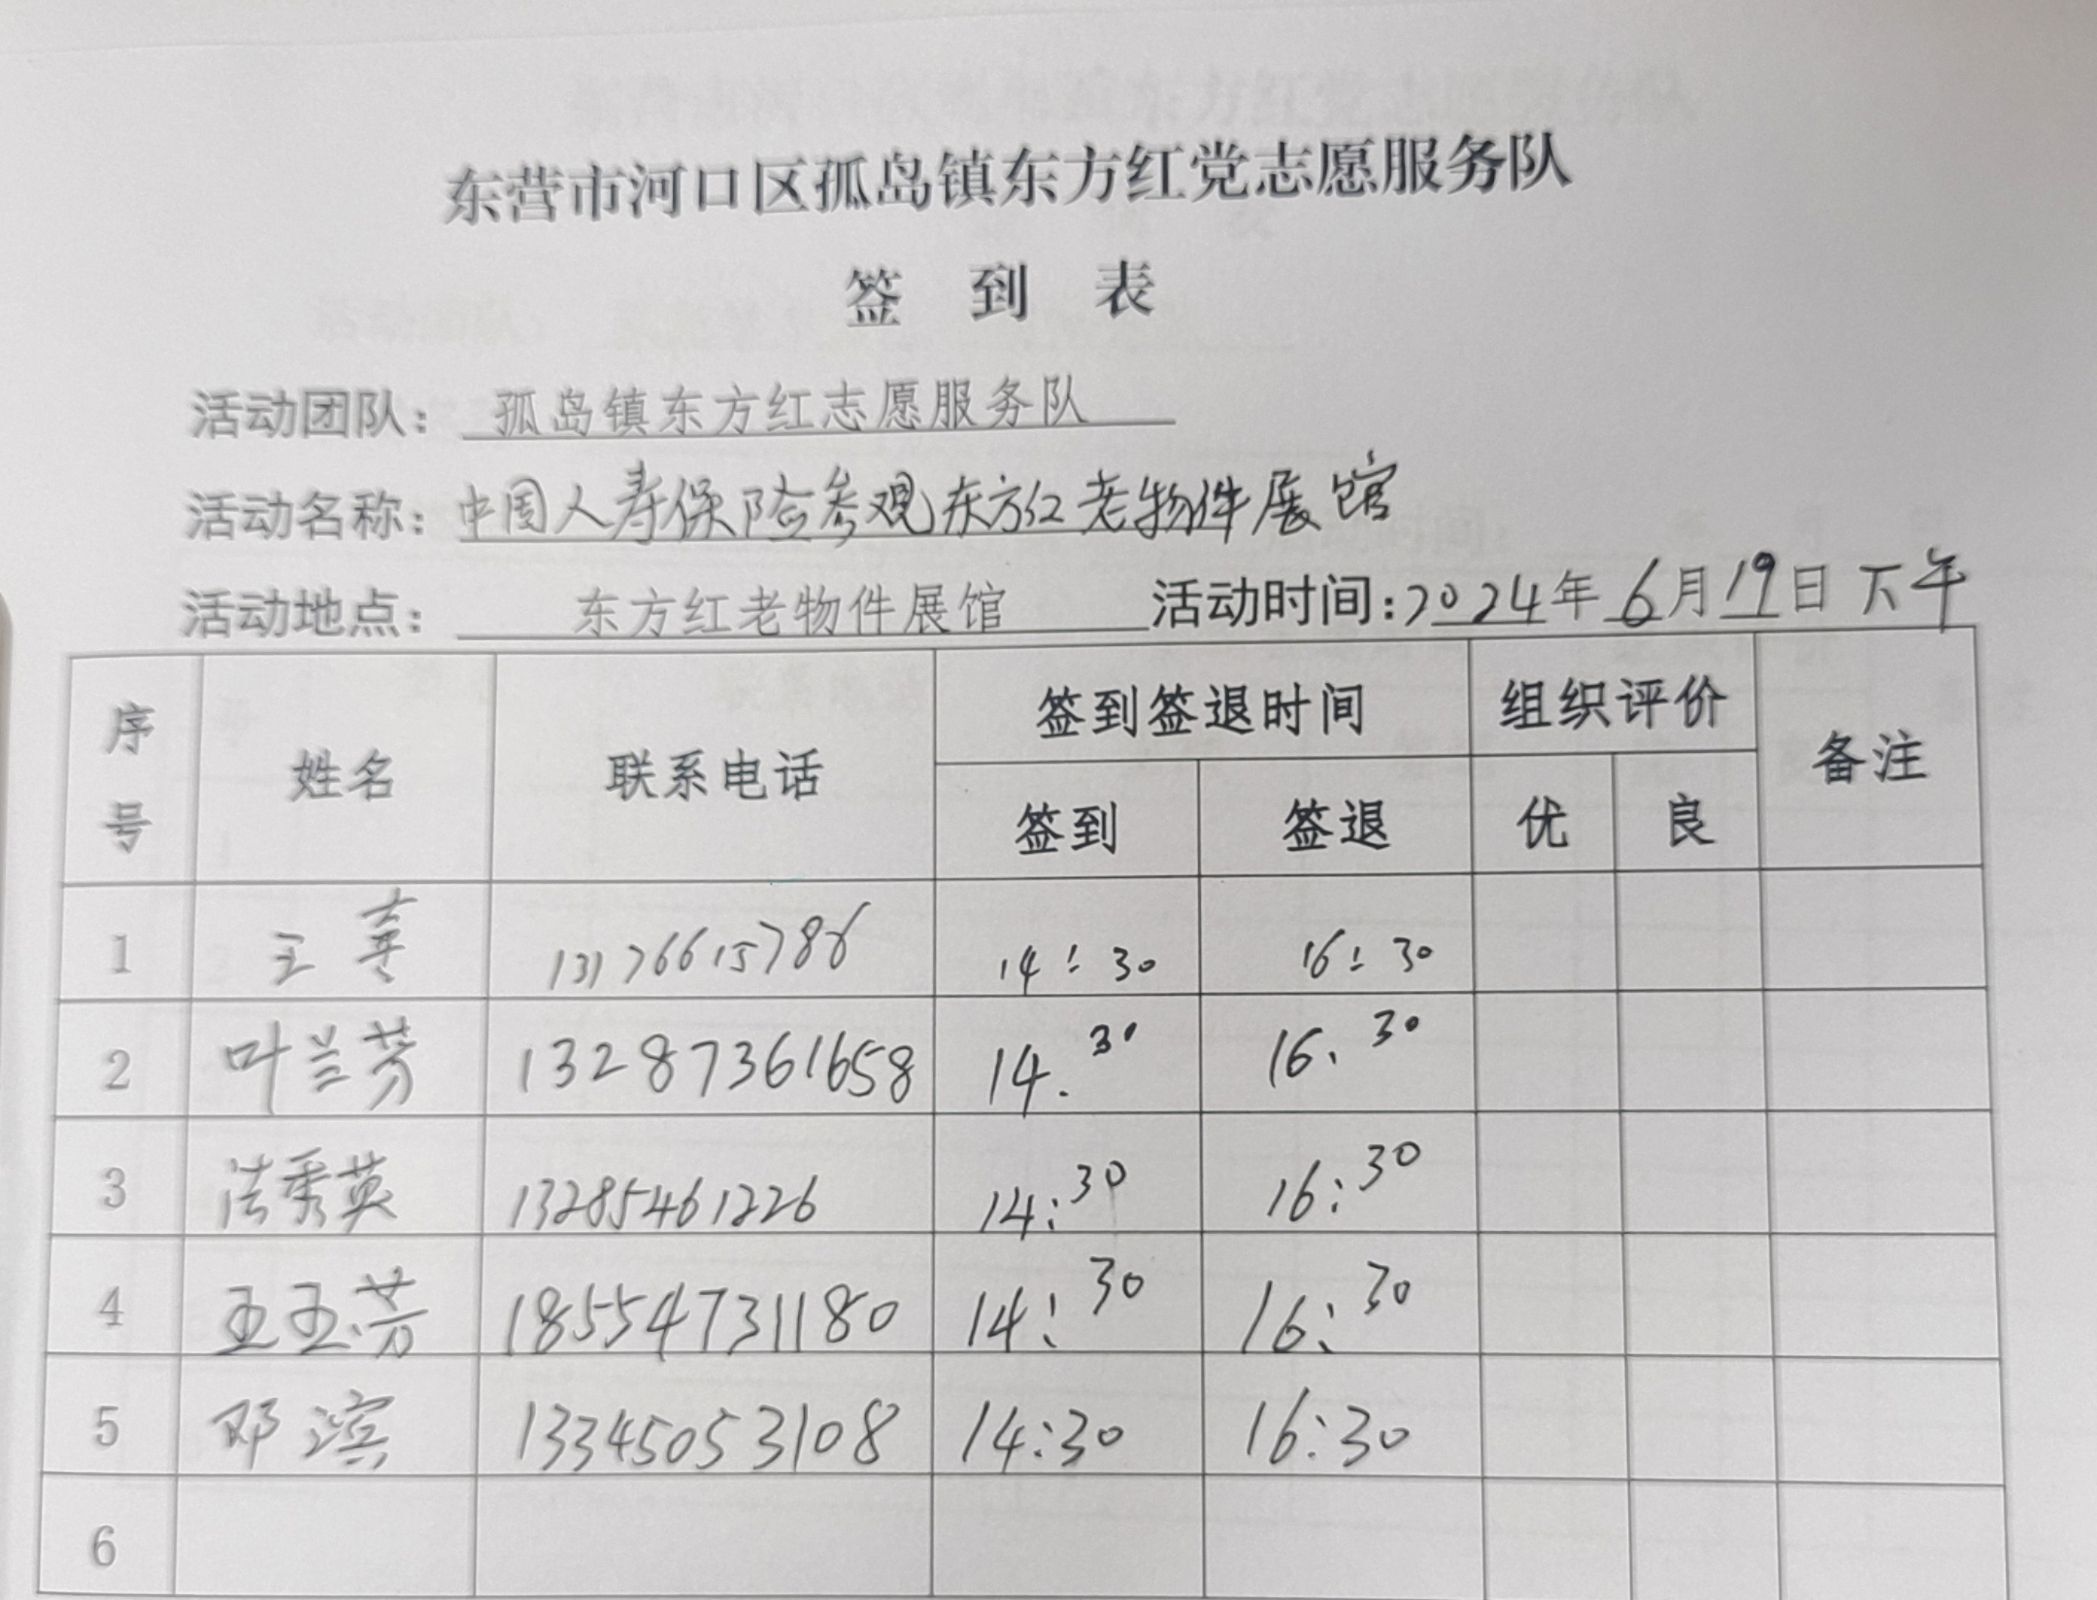 东营市河口区孤岛镇东方红党志愿服务队
签 到 表
活动团队: 孤岛镇东方红志愿服务队
活动名称: 中国人寿保险参观东方红老物件展馆
活动地点: 东方红老物件展馆 活动时间: 2024年 6月 19日 下午
序号 姓名 联系电话 签到签退时间 组织评价 备注
签到 签退 优 良
1 王 13176615786 14:30 16:30
2 叶兰芳 13287361658 14.30 16.30
3 秀英 13285461226 14:30 16:30
4 王玉芳 18554731180 14:30 16:30
5 邓滨 13345053108 14:30 16:30
6